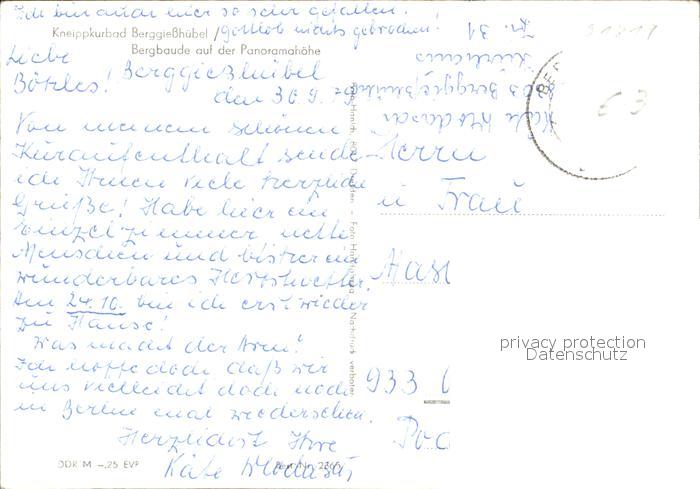 Ich bin auch hier so sehr gefallen!
gottlob nichts gebrochen!
Kneippkurbad Berggießhübel /
Bergbaude auf der Panoramahöhe
Liebe
Berggießhübel
den 30.9.79
Von meinem schönen
Kuraufenthalt sende
ich Ihnen viele herzliche
Grüße! Habe hier ein
Einzelzimmer nette
Menschen und bisher ein
wunderbares Herbstwetter.
Am 24.10. bin ich erst wieder
zu Hause!
Was macht der Arm?
Ich hoffe doch daß wir
uns vielleicht doch noch
in Berlin mal wiedersehen.
Herzlichst Ihre
Käte
DDR M –,25 EVP
Nachdruck verboten
Kurhaus
Zr. 31
Herrn
u Frau
933
privacy protection
Datenschutz
63